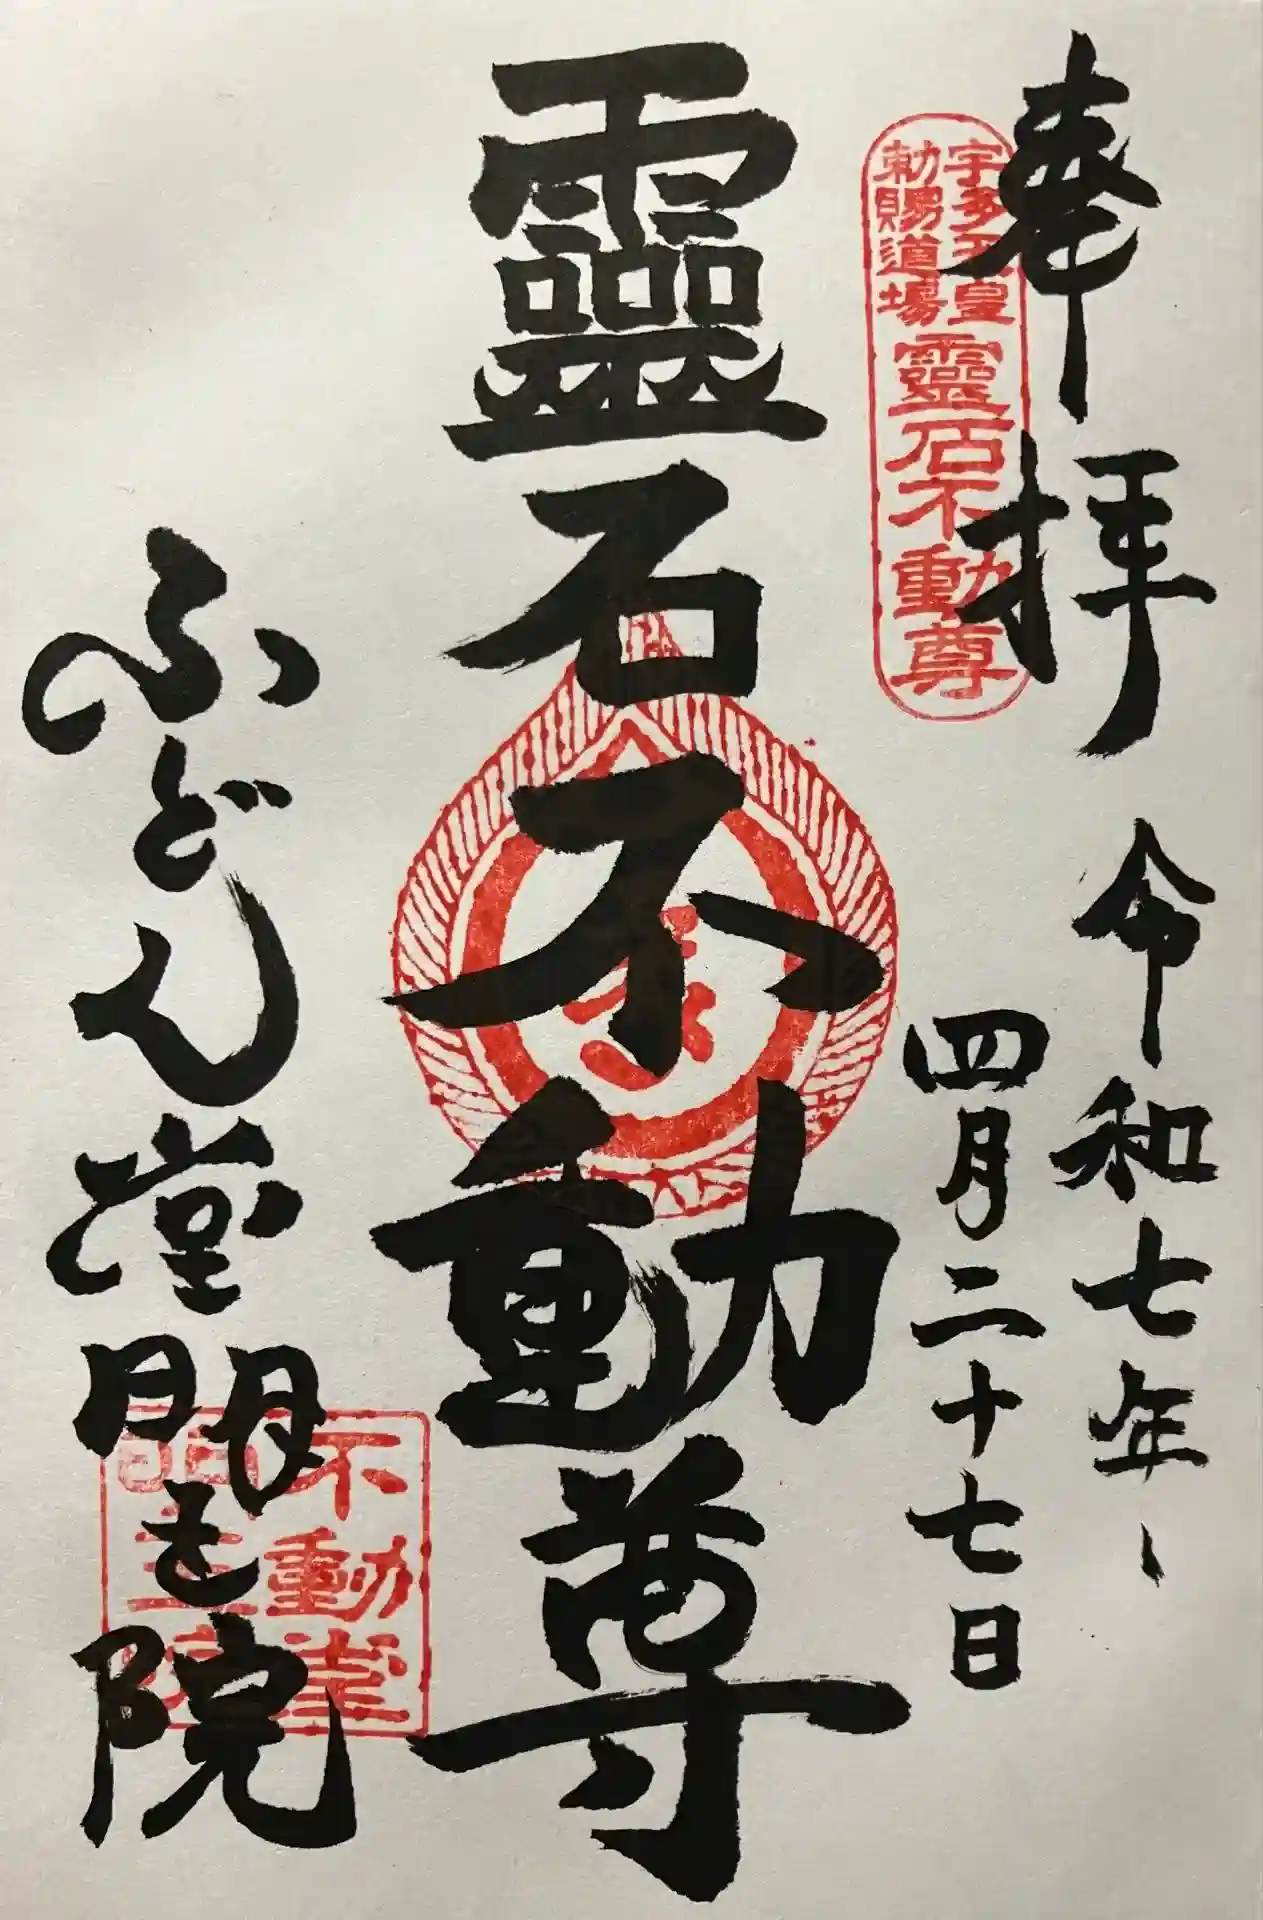 奉拝
令和七年
四月二十七日
宇多天皇
勅賜道場
霊石不動尊
靈石不動尊
ふどん堂明王院
不動堂
明王院